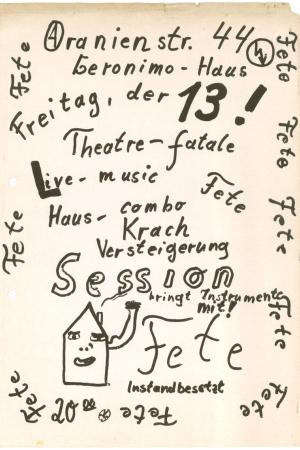 Oranienstr. 44
Geronimo-Haus
Freitag, der 13!
Theatre-fatale
Live-music
Haus-combo
Krach
Versteigerung
Session
bringt Instrumente
mit!
Fete
Instandbesetzt
20⁰⁰
Fete
Fete
Fete
Fete
Fete
Fete
Fete
Fete
Fete
Fete
Fete